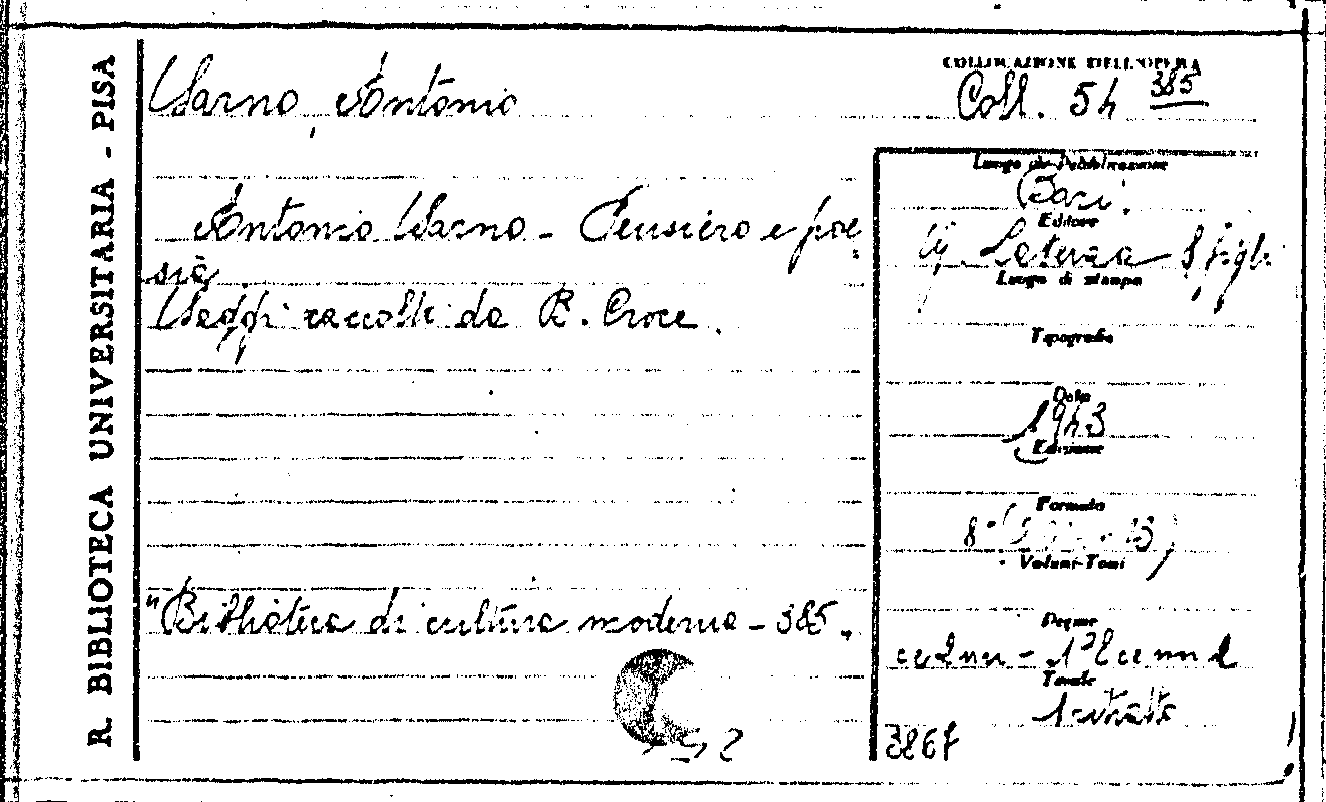 R. BIBLIOTECA UNIVERSITARIA - PISA
Sarno, Antonio
COLLOCAZIONE DELL'OPERA
Coll. 54 385
Antonio Sarno - Pensiero e poe=
sia
Saggi raccolti da B. Croce.
"Biblioteca di cultura moderna - 385"
Luogo di Pubblicazione
Bari.
Editore
G. Laterza & figli
Luogo di stampa
Tipografia
Data
1943
Edizione
Formato
8°
Volumi-Tomi
Pagine
Tavole
1 ritratto
3867